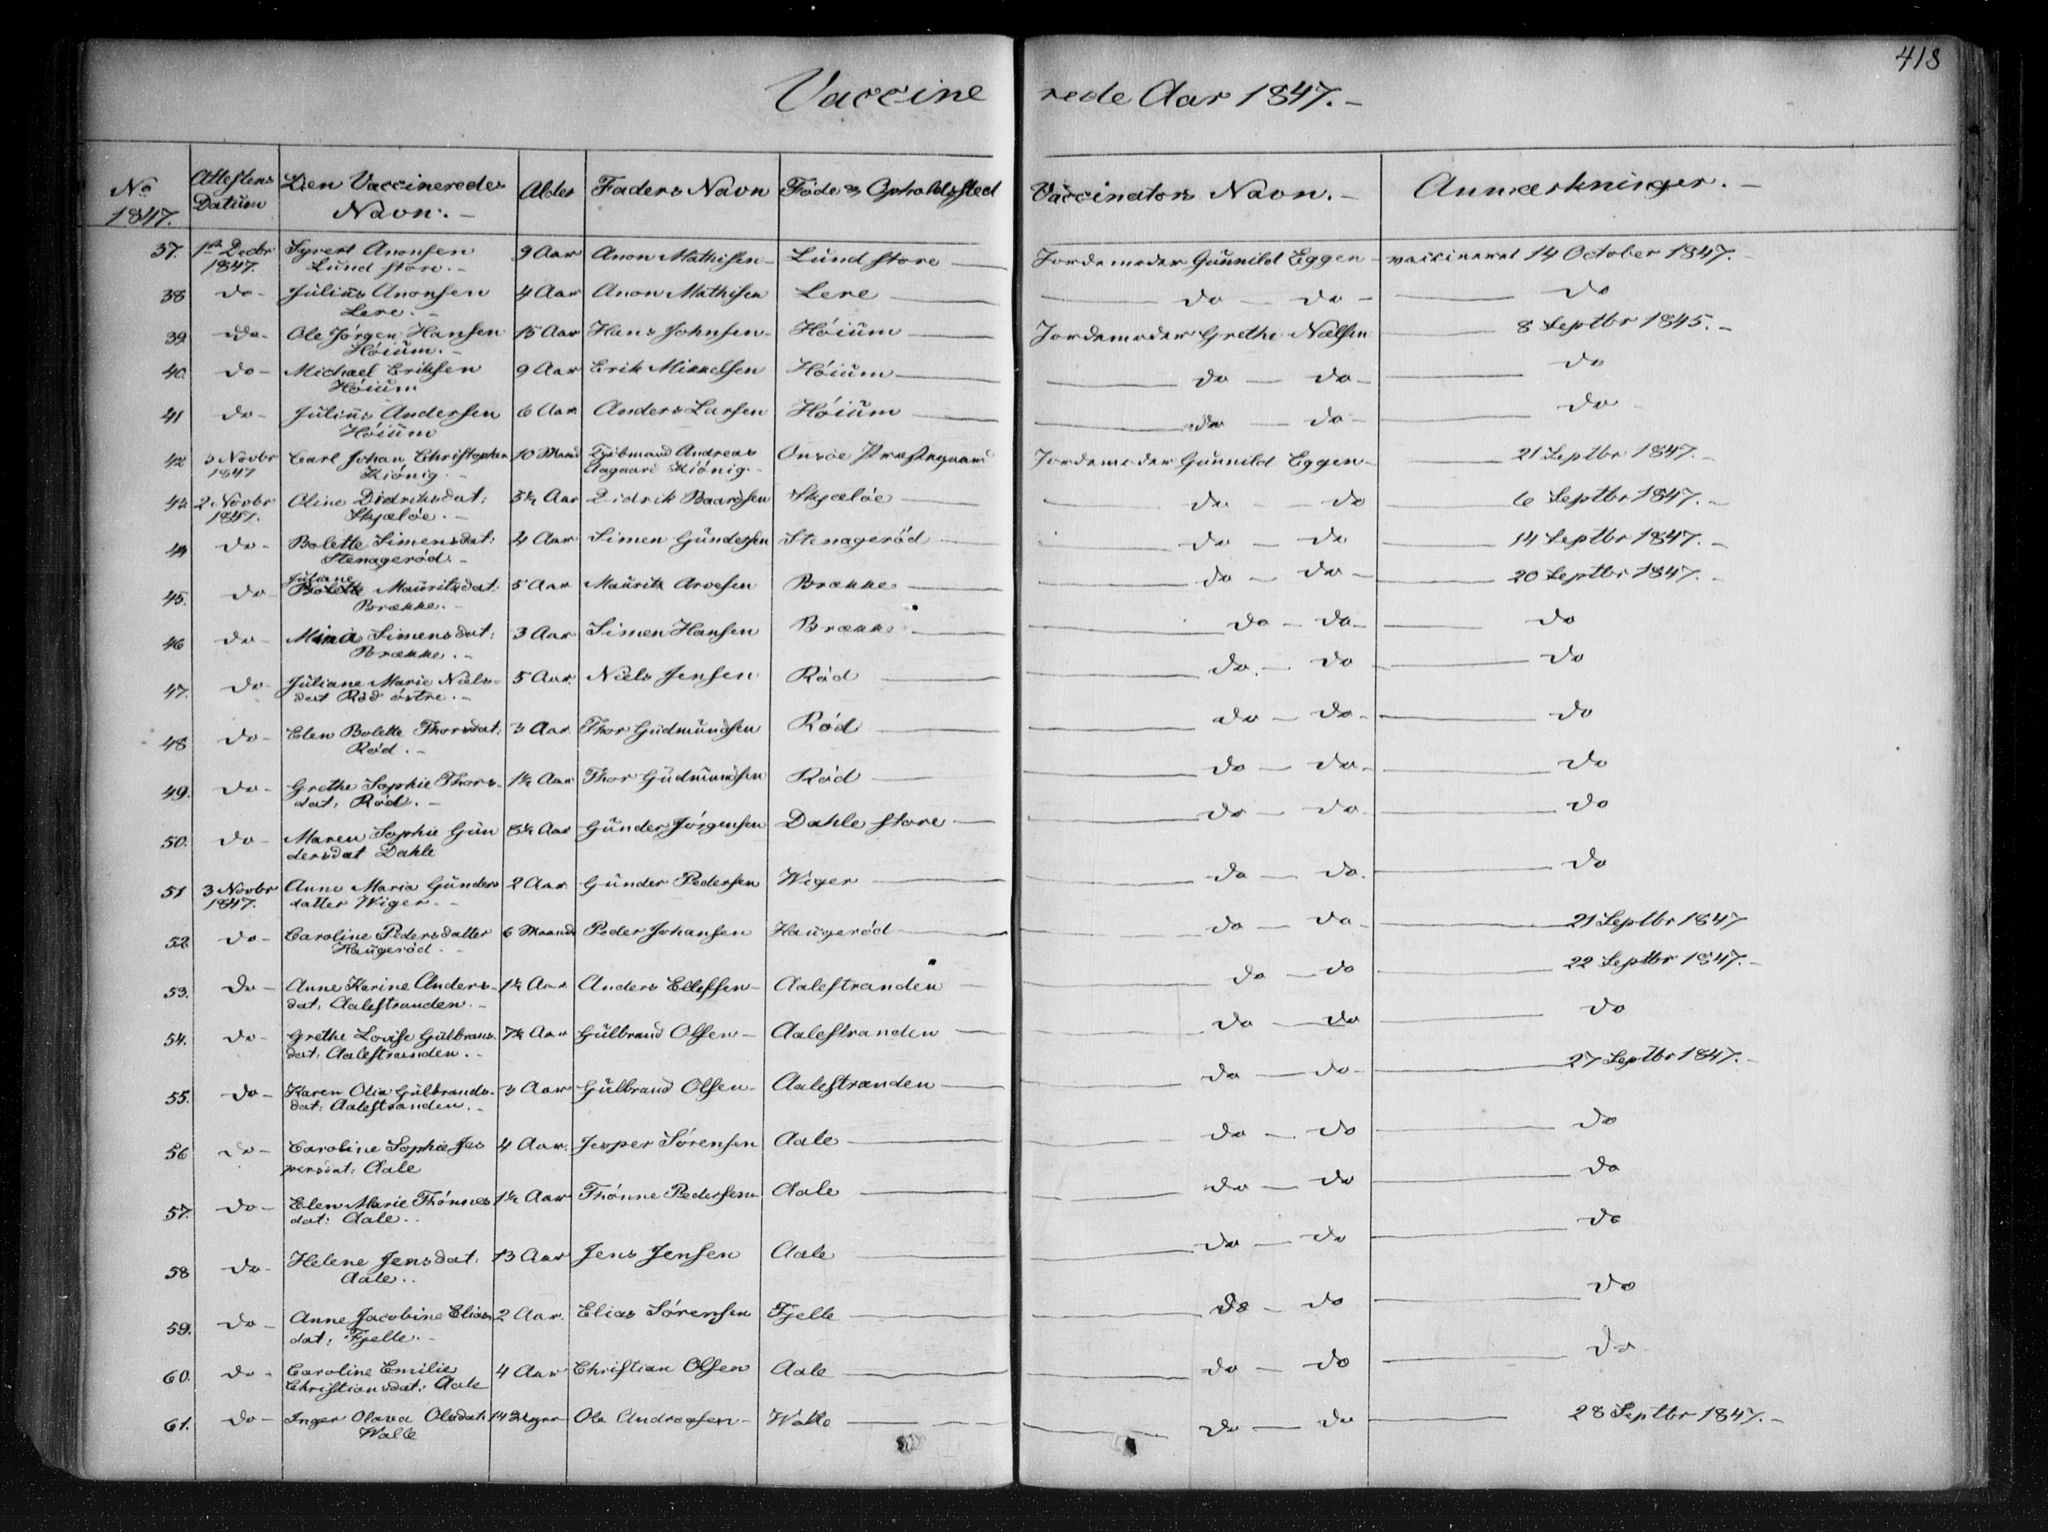 418
Vaccinerede Aar 1847.-
No 1847. | Attestens Datum | Den Vaccineredes Navn.- | Alder | Faders Navn | Föde og Opholdssted | Vaccinators Navn.- | Anmærkninger.-
37. | 1ste Decbr 1847. | Syvert Anonsen Lund store.- | 9 Aar | Anon Mathisen | Lund store | Jordemoder Gunnild Eggen | vaccineret 14 October 1847.-
38 | do | Julius Anonsen Lere.- | 4 Aar | Anon Mathisen | Lere | do - do | do
39 | do | Ole Jörgen Hansen Höium.- | 15 Aar | Hans Johnsen | Höium | Jordemoder Grethe Nælsen | 8 Septbr 1845.-
40. | do | Michael Eriksen Höium | 9 Aar | Erik Mikkelsen | Höium | do - do | do
41 | do | Julius Andersen Höium | 6 Aar | Anders Larsen | Höium | do - do | do
42 | 3 Novbr 1847 | Carl Johan Christopher Kiönig.- | 10 Maand | Andreas Aagaard Kiönig.- | Onsöe Præstegaard | Jordemoder Gunnild Eggen | 21 Septbr 1847.-
43 | 2 Novbr 1847. | Oline Didriksdat: Skjælöe.- | 5½ Aar | Didrik Baardsen | Skjælöe | do - do | 6 Septbr 1847.-
44 | do | Bolette Simensdat: Stenageröd.- | 4 Aar | Simen Gundersen | Stenageröd | do - do | 14 Septbr 1847.-
45. | do | Juliane Bolette Mauritzdat: Brække.- | 5 Aar | Mauritz Arvesen | Brække | do - do | 20 Septbr 1847.-
46 | do | Mina Simensdat: Brække.- | 3 Aar | Simen Hansen | Brække | do - do | do
47. | do | Juliane Marie Nielsdat Röd östre.- | 5 Aar. | Niels Jensen | Röd | do - do | do
48 | do | Elen Bolette Thorsdat: Röd.- | 3 Aar. | Thor Gudmundsen | Röd | do - do | do
49. | do | Grethe Sophie Thorsdat: Röd.- | 1½ Aar | Thor Gudmundsen | Röd | do - do | do
50. | do | Maren Sophie Gundersdat Dahle | 8½ Aar | Gunder Jörgensen | Dahle store | do - do | do
51 | 3 Novbr 1847. | Anne Maria Gundersdatter Wiger.- | 2 Aar. | Gunder Pedersen | Wiger | do - do. | do
52. | do | Caroline Pedersdatter Haugeröd.- | 6 Maand | Peder Johansen | Haugeröd | do - do | 21 Septbr 1847
53. | do | Anne Karine Andersdat: Aalestranden.- | 1½ Aar | Anders Ellefsen | Aalestranden | do - do | 22 Septbr 1847.-
54. | do | Grethe Lovise Gulbransdat: Aalestranden.- | 7½ Aar | Gulbrand Olsen | Aalestranden | do - do | do
55. | do | Karen Olia Gulbrandsdat: Aalestranden.- | 3 Aar | Gulbrand Olsen | Aalestranden | do - do | 27 Septbr 1847.-
56 | do | Caroline Sophie Jespersdat: Aale | 4 Aar. | Jesper Sörensen | Aale | do - do | do
57. | do | Elen Marie Thönnesdat: Aale.- | 1½ Aar | Thönne Pedersen | Aale | do - do | do
58 | do | Helene Jensdat: Aale.- | 13 Aar | Jens Jensen | Aale | do - do | do
59. | do | Anne Jacobine Eliasdat: Fjelle.- | 2 Aar. | Elias Sörensen | Fjelle | do - do | do
60. | do | Caroline Emilie Christiansdat: Aale | 4 Aar | Christian Olsen | Aale | do - do | do
61. | do | Inger Olava Olsdat: Walle | 14 Uger | Ole Andreasen | Walle | do - do | 28 Septbr 1847.-